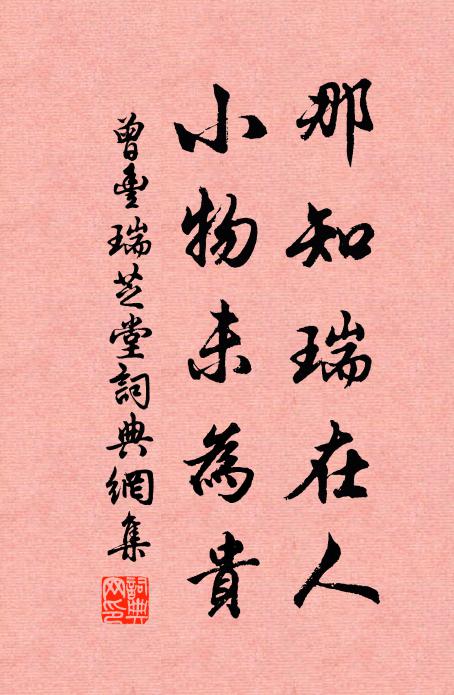 那知瑞在人
小物未為貴
曾豐瑞芝堂詞典網集
詞典網印